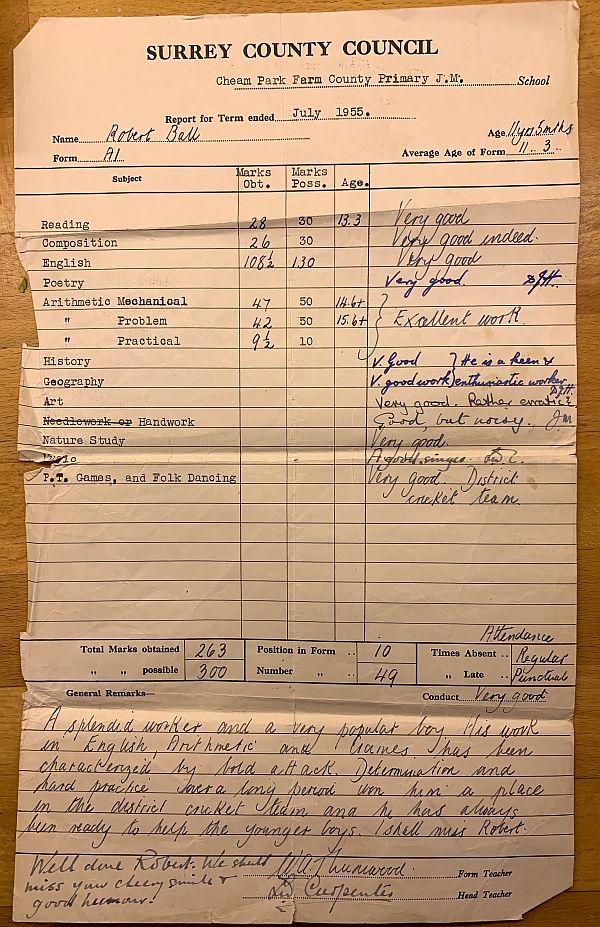 SURREY COUNTY COUNCIL
Cheam Park Farm County Primary J.M. School
Report for Term ended July 1955.
Name Robert Ball Age 11yrs 5mths
Form A1 Average Age of Form 11.3
Subject Marks Obt. Marks Poss. Age.
Reading 28 30 13.3 Very good
Composition 26 30 Very good indeed.
English 108½ 130 Very good
Poetry Very good.
Arithmetic Mechanical 47 50 14.6+
" Problem 42 50 15.6+ Excellent work.
" Practical 9½ 10
History V. Good } He is a keen &
Geography V. good work } enthusiastic worker
Art Very good. Rather erratic
Needlework or Handwork Good, but noisy. JM
Nature Study Very good.
A good singer.
P.T. Games, and Folk Dancing Very good. District
cricket team.
Attendance
Total Marks obtained 263 Position in Form .. 10 Times Absent .. Regular
" " possible 300 Number " .. 49 " Late .. Punctual
General Remarks Conduct Very good
A splendid worker and a very popular boy. His work
in English, Arithmetic and Games has been
characterized by bold attack. Determination and
hard practice over a long period won him a place
in the district cricket team and he has always
been ready to help the younger boys. I shall miss Robert.
Well done Robert. We shall Form Teacher
miss your cheery smile & Carpenter Head Teacher
good humour!